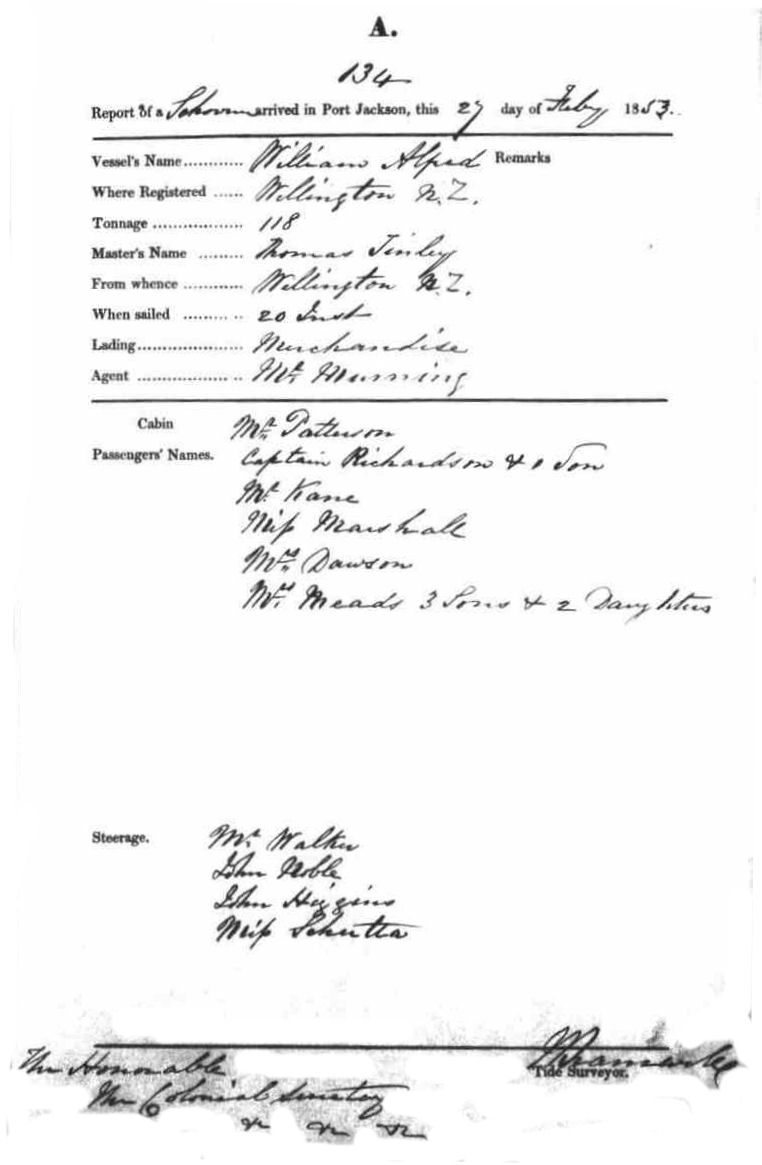 A.
134
Report of a Schooner arrived in Port Jackson, this 27 day of Feby 1853.
Vessel's Name ............ William Alfred Remarks
Where Registered ...... Wellington N.Z.
Tonnage .................. 118
Master's Name ......... Thomas Tinley
From whence ............ Wellington N.Z.
When sailed ......... .. 20 Inst
Lading..................... Merchandise
Agent .................. .. Mr. Murning
Cabin Mr. Patterson
Passengers' Names. Captain Richardson & 1 Son
Mr. Kane
Miss Marshall
Mrs. Dawson
Mrs. Meads 3 Sons & 2 Daughters
Steerage. Mr. Walker
John Noble
John Higgins
Miss Schutta
The Honorable
Tide Surveyor.
The Colonial Secretary